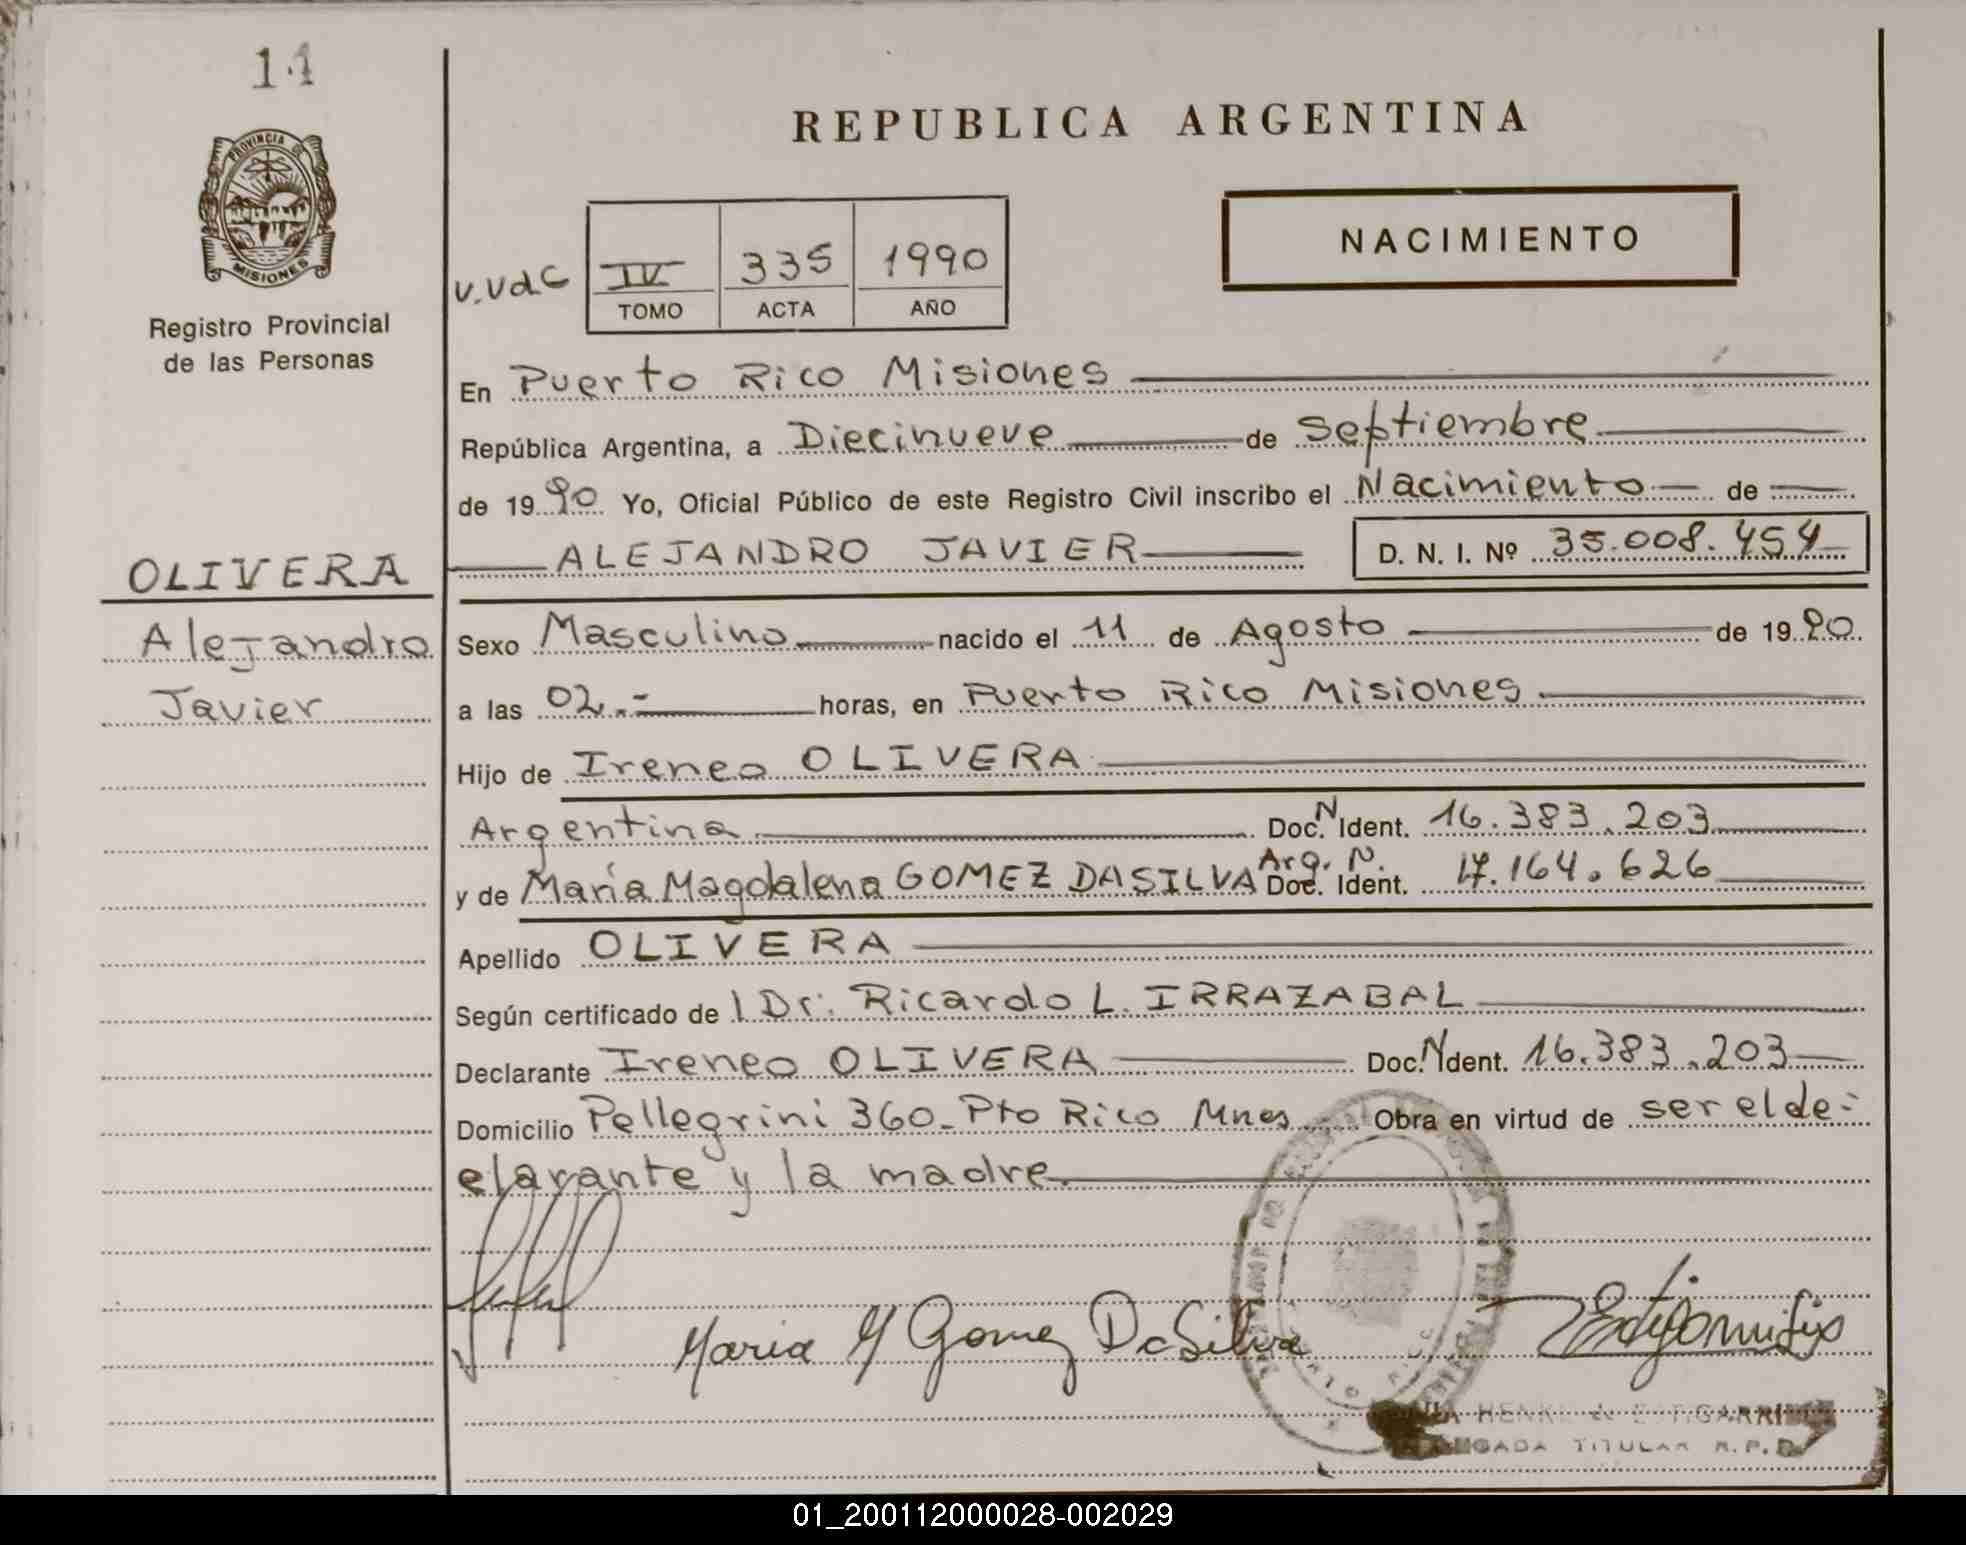 14
REPUBLICA ARGENTINA
PROVINCIA DE
MISIONES
Registro Provincial
de las Personas
NACIMIENTO
V.VdC
IV 335 1990
TOMO ACTA AÑO
En Puerto Rico Misiones
República Argentina, a Diecinueve de Septiembre
de 1990 Yo, Oficial Público de este Registro Civil inscribo el Nacimiento de
ALEJANDRO JAVIER D. N. I. Nº 35.008.454
OLIVERA
Alejandro
Javier
Sexo Masculino nacido el 11 de Agosto de 1990
a las 02.- horas, en Puerto Rico Misiones
Hijo de Ireneo OLIVERA
Argentina Doc. N Ident. 16.383.203
y de María Magdalena GOMEZ DASILVA Arg. N. Doc. Ident. 17.164.626
Apellido OLIVERA
Según certificado de l Dr. Ricardo L. IRRAZABAL
Declarante Ireneo OLIVERA Doc. N Ident. 16.383.203
Domicilio Pellegrini 360_Pto Rico Mnes Obra en virtud de ser el de-
clarante y la madre
Maria M Gomez DaSilva
HENK
TITULAR R.P.
01_200112000028-002029